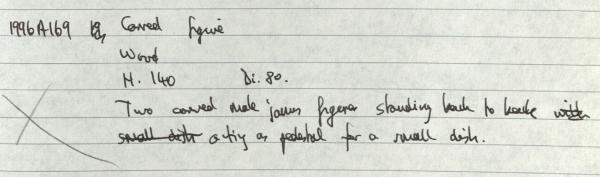 1996A169 Carved figure
Wood
H. 140 Di. 80.
Two carved male janus figures standing back to back with
small dish acting as pedestal for a small dish.